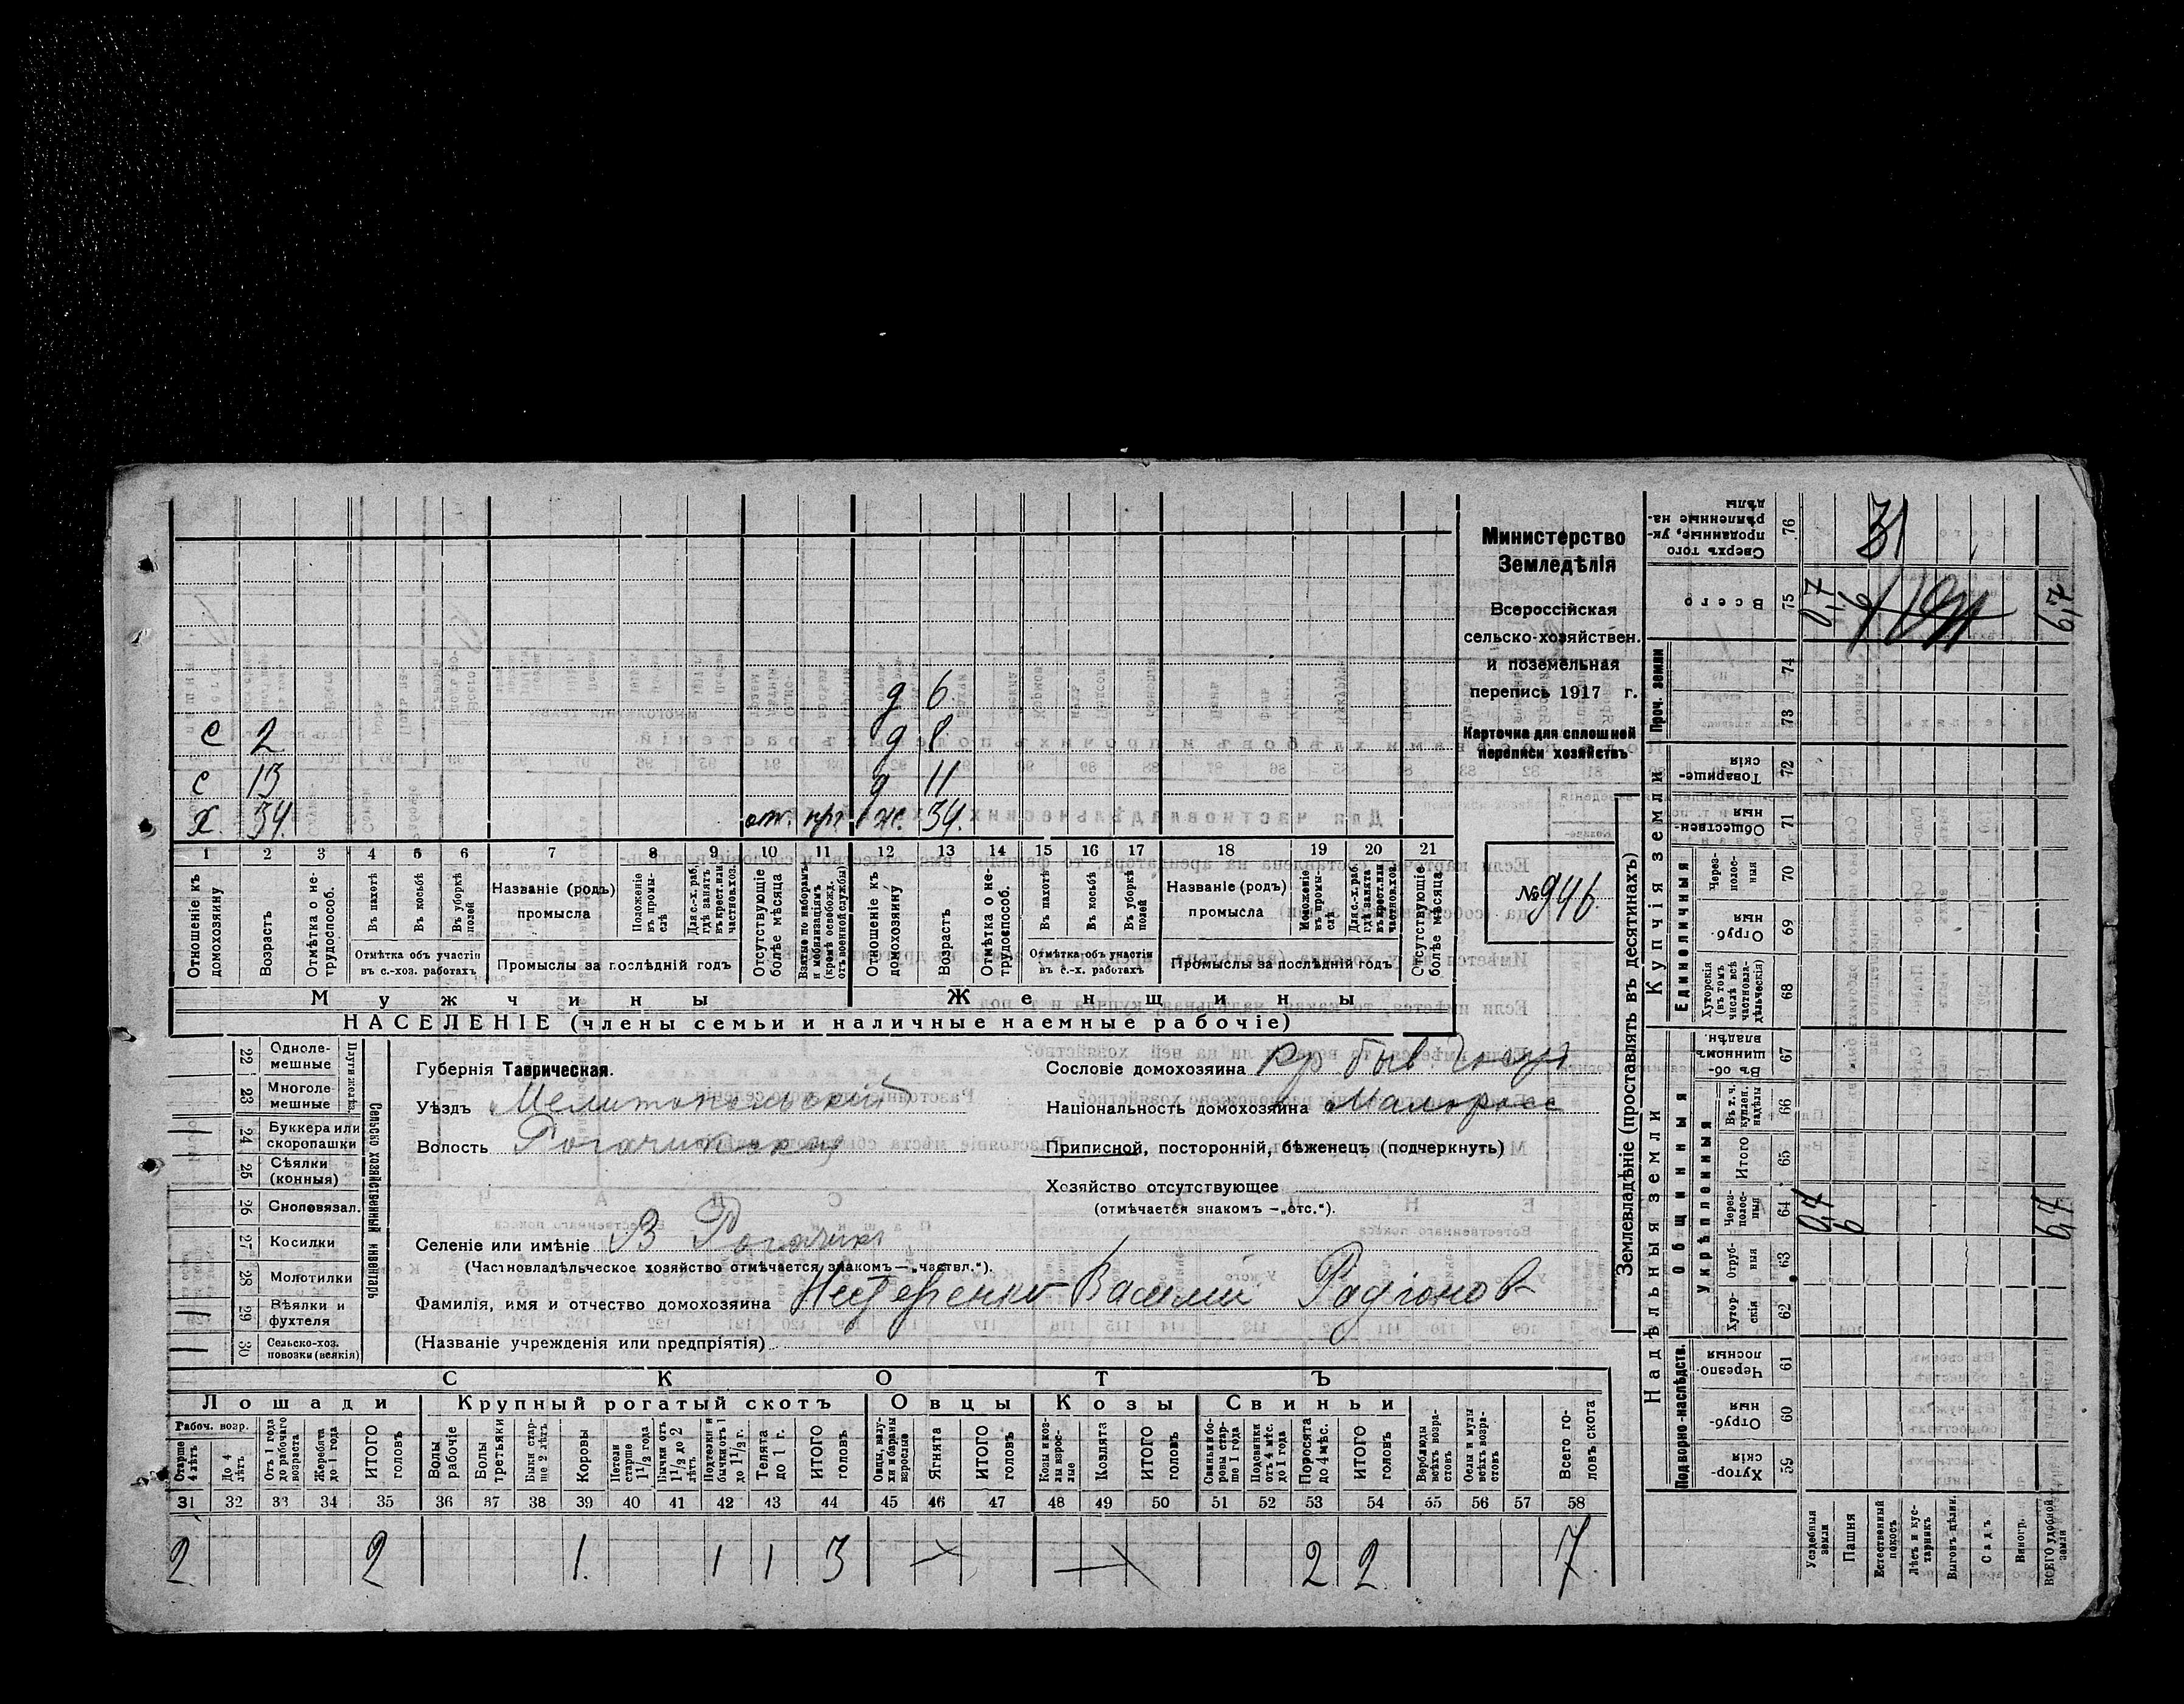 Министерство
Земледѣлія
Всероссійская
сельско-хозяйствен.
и поземельная
перепись 1917 г.
Карточка для сплошной
переписи хозяйствъ
№ 946.
д 6
с 2 д 8
с 13 д 11
х. 34. отс. пр. ж. 34.
1 2 3 4 5 6 7 8 9 10 11 12 13 14 15 16 17 18 19 20 21
Отношеніе къ домохозяину
Возрастъ
Отмѣтка о нетрудоспособ.
Въ пахотѣ
Въ косьбѣ
Въ уборкѣ полей
Отмѣтка объ участіи
въ с.-хоз. работахъ
Названіе (родъ)
промысла
Положеніе въ промыслѣ
Для с.-х. раб. гдѣ занятъ въ крест. или частнов. хоз.
Промыслы за послѣдній годъ
Отсутствующіе болѣе мѣсяца
Взятые по наборамъ и мобилизаціямъ (кромѣ освобожд. отъ военной службы)
Отношеніе къ домохозяину
Возрастъ
Отмѣтка о нетрудоспособ.
Въ пахотѣ
Въ косьбѣ
Въ уборкѣ полей
Отмѣтка объ участіи
въ с.-х. работахъ
Названіе (родъ)
промысла
Положеніе въ промыслѣ
Для с.-х. раб. гдѣ занята въ крест. или частнов. хоз.
Промыслы за послѣдній годъ
Отсутствующіе болѣе мѣсяца
Мужчины Женщины
НАСЕЛЕНІЕ (члены семьи и наличные наемные рабочіе)
Сельско хозяйственный инвентарь
22 Однолемешные
23 Многолемешные
24 Буккера или скоропашки
25 Сѣялки (конныя)
26 Сноповязал.
27 Косилки
28 Молотилки
29 Вѣялки и фухтеля
30 Сельско-хоз. повозки (всякія)
Губернія Таврическая.
Уѣздъ Мелитопольскій
Волость
Селеніе или имѣніе В Рогачикъ
(Частновладѣльческое хозяйство отмѣчается знакомъ—„частвл.“).
Фамилія, имя и отчество домохозяина Нестеренко Василій Радіонов
(Названіе учрежденія или предпріятія)
Сословіе домохозяина кр быв. госуд
Національность домохозяина Малоросс
Приписной, посторонній, бѣженецъ (подчеркнуть)
Хозяйство отсутствующее
(отмѣчается знакомъ —„отс.“).
СКОТЪ
Лошади Крупный рогатый скотъ Овцы Козы Свиньи
Рабоч. возр.
Старше 4 лѣтъ
До 4 лѣтъ
Отъ 1 года до рабочаго возраста
Жеребята до 1 года
ИТОГО головъ
Волы рабочіе
Волы третьяки
Быки старше 2 лѣтъ
Коровы
Нетели старше 1½ года
Бычки отъ 1½ до 2 лѣтъ
Подтелки и бычки отъ 1 до 1½ г.
Телята до 1 г.
ИТОГО головъ
Овцы валухи и бараны взрослые
Ягнята
ИТОГО головъ
Козы и козлы взрослые
Козлята
ИТОГО головъ
Свиньи боровы старше 1 года
Подсвинки отъ 4 мѣс. до 1 года
Поросята до 4 мѣс.
ИТОГО головъ
Верблюды всѣхъ возрастовъ
Ослы и мулы всѣхъ возрастовъ
Всего головъ скота
31 32 33 34 35 36 37 38 39 40 41 42 43 44 45 46 47 48 49 50 51 52 53 54 55 56 57 58
2 2 1. 1 1 3 2 2 7
Землевладѣніе (проставлять въ десятинахъ)
Надѣльныя земли Купчія земли Проч. земли
Подворно-наслѣдств.
Общинныя
Укрѣпленныя
Единоличныя
59 Хуторскія
60 Отрубныя
61 Черезполосныя
62 Хуторскія
63 Отрубныя
64 Черезполосныя 0,7 6 6,7
65 Итого
66 Въ т. ч. куплен. надѣлы
67 Въ общинномъ владѣн.
68 Хуторскія (въ томъ числѣ всѣ частновладѣльческія)
69 Отрубныя
70 Черезполосныя
71 Общественныя
72 Товарищескія
73
74
75 Всего 0,7 6 6,7
76 Сверхъ того проданные, укрѣпленные надѣлы 31
Усадебныя земли
Пашня
Естественный покосъ
Лѣсъ и кустарникъ
Выгонъ цѣлин.
Садъ
Виногр.
ВСЕГО удобной земли